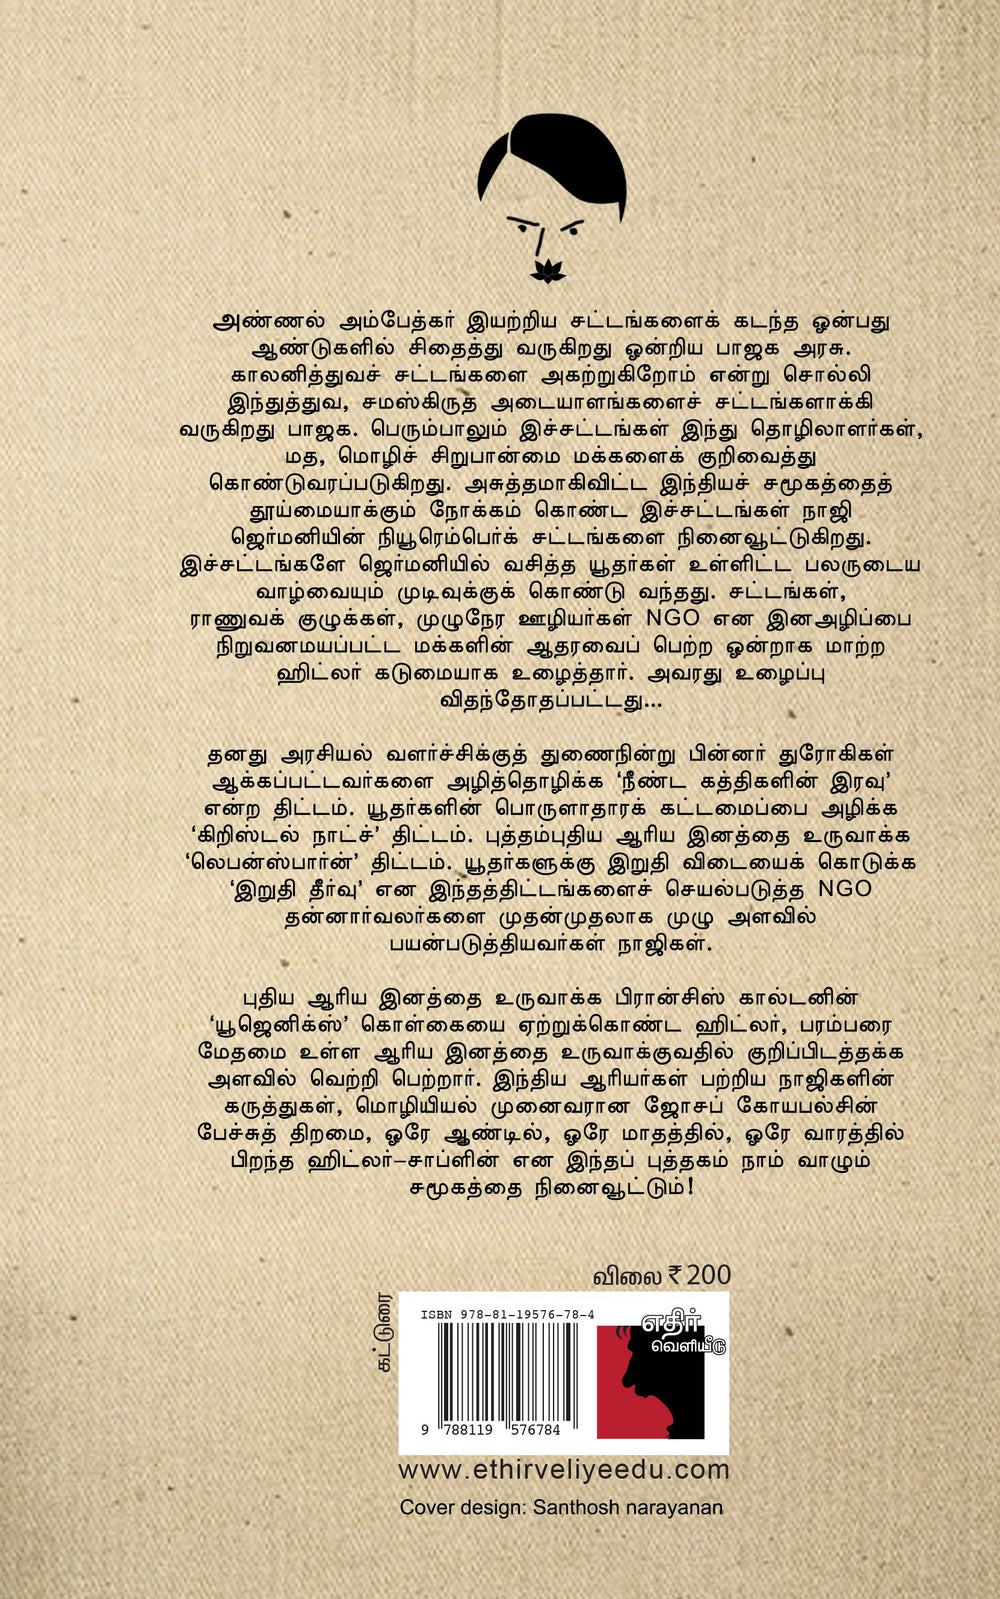 அண்ணல் அம்பேத்கர் இயற்றிய சட்டங்களைக் கடந்த ஒன்பது
ஆண்டுகளில் சிதைத்து வருகிறது ஒன்றிய பாஜக அரசு.
காலனித்துவச் சட்டங்களை அகற்றுகிறோம் என்று சொல்லி
இந்துத்துவ, சமஸ்கிருத அடையாளங்களைச் சட்டங்களாக்கி
வருகிறது பாஜக. பெரும்பாலும் இச்சட்டங்கள் இந்து தொழிலாளர்கள்,
மத, மொழிச் சிறுபான்மை மக்களைக் குறிவைத்து
கொண்டுவரப்படுகிறது. அசுத்தமாகிவிட்ட இந்தியச் சமூகத்தைத்
தூய்மையாக்கும் நோக்கம் கொண்ட இச்சட்டங்கள் நாஜி
ஜெர்மனியின் நியூரெம்பெர்க் சட்டங்களை நினைவூட்டுகிறது.
இச்சட்டங்களே ஜெர்மனியில் வசித்த யூதர்கள் உள்ளிட்ட பலருடைய
வாழ்வையும் முடிவுக்குக் கொண்டு வந்தது. சட்டங்கள்,
ராணுவக் குழுக்கள், முழுநேர ஊழியர்கள் NGO என இனஅழிப்பை
நிறுவனமயப்பட்ட மக்களின் ஆதரவைப் பெற்ற ஒன்றாக மாற்ற
ஹிட்லர் கடுமையாக உழைத்தார். அவரது உழைப்பு
விதந்தோதப்பட்டது...
தனது அரசியல் வளர்ச்சிக்குத் துணைநின்று பின்னர் துரோகிகள்
ஆக்கப்பட்டவர்களை அழித்தொழிக்க ‘நீண்ட கத்திகளின் இரவு’
என்ற திட்டம். யூதர்களின் பொருளாதாரக் கட்டமைப்பை அழிக்க
‘கிறிஸ்டல் நாட்ச்’ திட்டம். புத்தம்புதிய ஆரிய இனத்தை உருவாக்க
‘லெபன்ஸ்பார்ன்’ திட்டம். யூதர்களுக்கு இறுதி விடையைக் கொடுக்க
‘இறுதி தீர்வு’ என இந்தத்திட்டங்களைச் செயல்படுத்த NGO
தன்னார்வலர்களை முதன்முதலாக முழு அளவில்
பயன்படுத்தியவர்கள் நாஜிகள்.
புதிய ஆரிய இனத்தை உருவாக்க பிரான்சிஸ் கால்டனின்
‘யூஜெனிக்ஸ்’ கொள்கையை ஏற்றுக்கொண்ட ஹிட்லர், பரம்பரை
மேதமை உள்ள ஆரிய இனத்தை உருவாக்குவதில் குறிப்பிடத்தக்க
அளவில் வெற்றி பெற்றார். இந்திய ஆரியர்கள் பற்றிய நாஜிகளின்
கருத்துகள், மொழியியல் முனைவரான ஜோசப் கோயபல்சின்
பேச்சுத் திறமை, ஒரே ஆண்டில், ஒரே மாதத்தில், ஒரே வாரத்தில்
பிறந்த ஹிட்லர்–சாப்ளின் என இந்தப் புத்தகம் நாம் வாழும்
சமூகத்தை நினைவூட்டும்!
விலை ₹ 200
கட்டுரை
ISBN 978-81-19576-78-4
9 788119 576784
எதிர்
வெளியீடு
www.ethirveliyeedu.com
Cover design: Santhosh narayanan